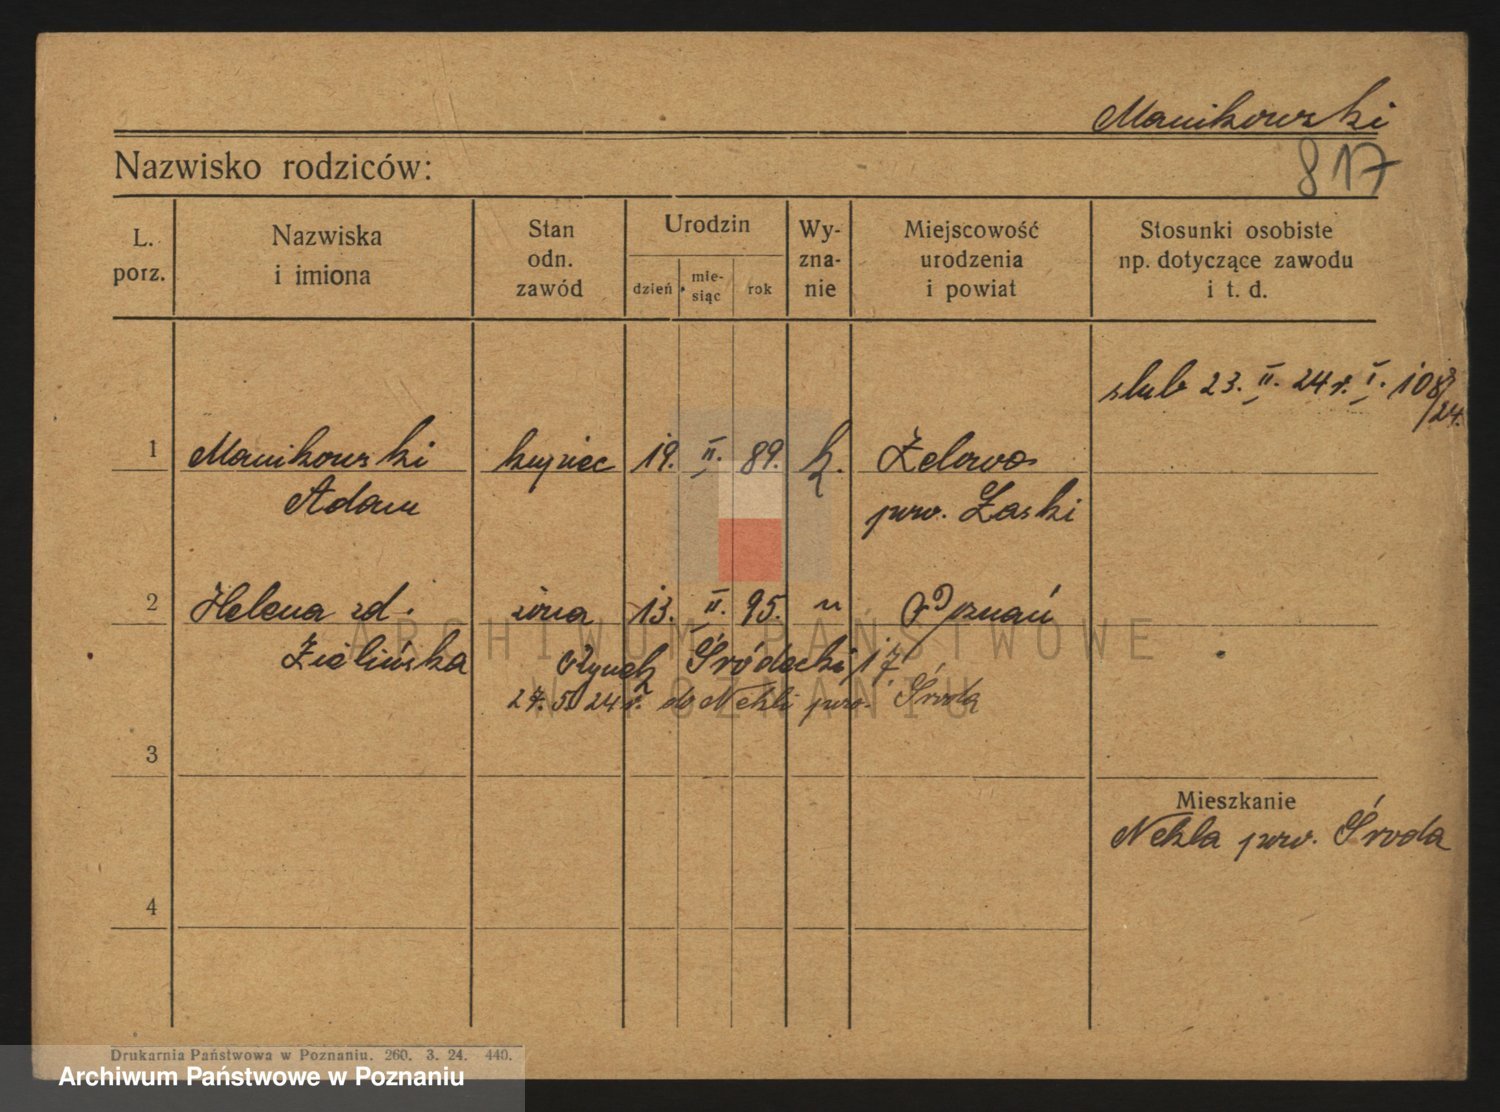 Manikowski
Nazwisko rodziców:
817
L. porz.
Nazwiska i imiona
Stan odn. zawód
Urodzin
dzień
mie-siąc
rok
Wy-zna-nie
Miejscowość urodzenia i powiat
Stosunki osobiste np. dotyczące zawodu i t. d.
ślub 23. II. 24 r. I. 108/24.
1 Manikowski kupiec 19. II. 89. k. Zelowo
Adam pow. Łaski
2 Helena zd. żona 13. II. 95. " Poznań
Zielińska Rynek Śródecki 17.
27. 5. 24 r. do Nekli pow. Środa
3
Mieszkanie
Nekla pow. Środa
4
ARCHIWUM PAŃSTWOWE
W POZNANIU
Drukarnia Państwowa w Poznaniu. 260. 3. 24. 440.
Archiwum Państwowe w Poznaniu